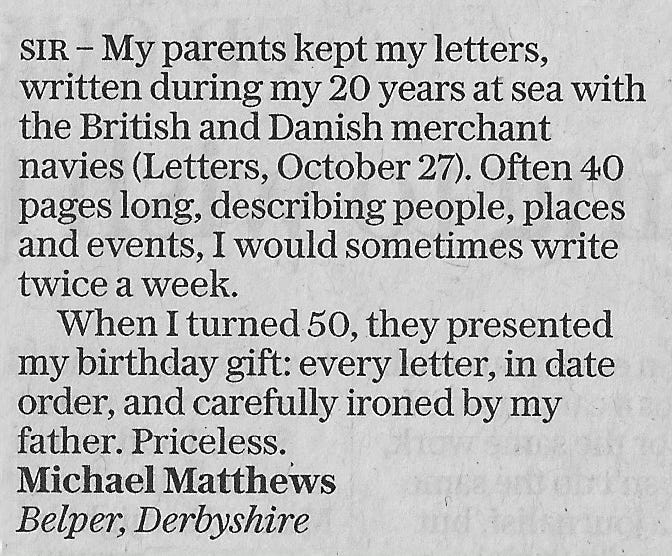 SIR – My parents kept my letters,
written during my 20 years at sea with
the British and Danish merchant
navies (Letters, October 27). Often 40
pages long, describing people, places
and events, I would sometimes write
twice a week.
When I turned 50, they presented
my birthday gift: every letter, in date
order, and carefully ironed by my
father. Priceless.
Michael Matthews
Belper, Derbyshire